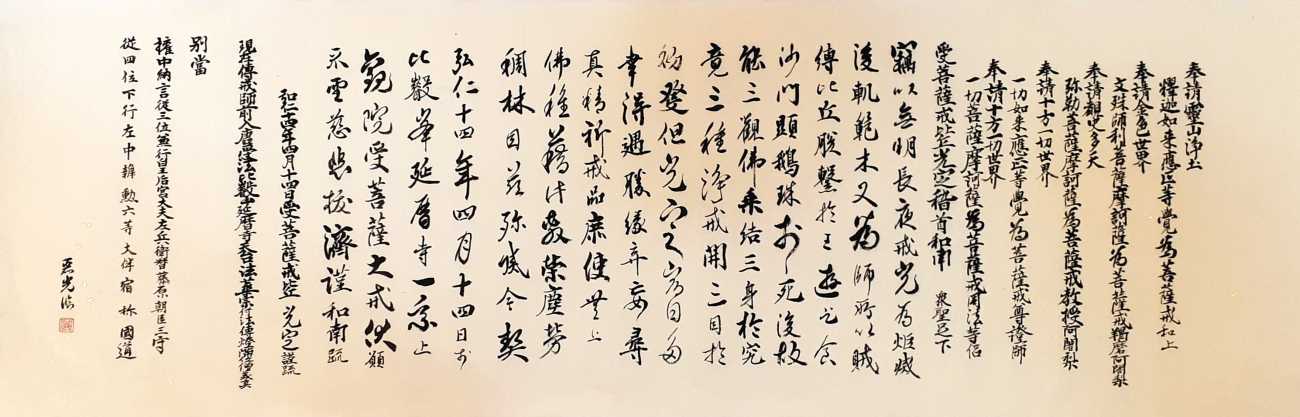 奉請靈山淨土
釋迦如來應正等覺為菩薩戒和上
奉請金色世界
文殊師利菩薩摩訶薩為菩薩戒羯磨阿闍梨
奉請覩史多天
弥勒菩薩摩訶薩為菩薩戒教授阿闍梨
奉請十方一切世界
一切如来應正等覺為菩薩戒尊證師
奉請十方一切世界
一切菩薩摩訶薩為菩薩戒同法等侶
受菩薩戒光定稽首和南 衆聖足下
竊以無明長夜戒光為炬
後軌範木叉為師所以賊
縛比丘脫繫於王遊乞食
沙門顕鵝珠於死後故
能三觀佛乗結三身於究
竟三種淨戒開三目於
初發但光定
幸得遇勝緣弃妄尋
真精祈戒品庶使無上
佛種
稠林因茲弥滅今契
弘仁十四年四月十四日於
比叡峯延暦寺一乘止
觀院受菩薩大戒伏願
采垂慈悲拔濟謹和南䟽
弘仁十四年四月十四日受菩薩戒 光定謹疏
現在傳戒師前入唐受法沙門比叡山延暦寺
別當
權中納言從三位兼行皇后宮大夫左兵衛督藤原朝臣三守
從四位下行左中辨勲六等大伴宿祢國道